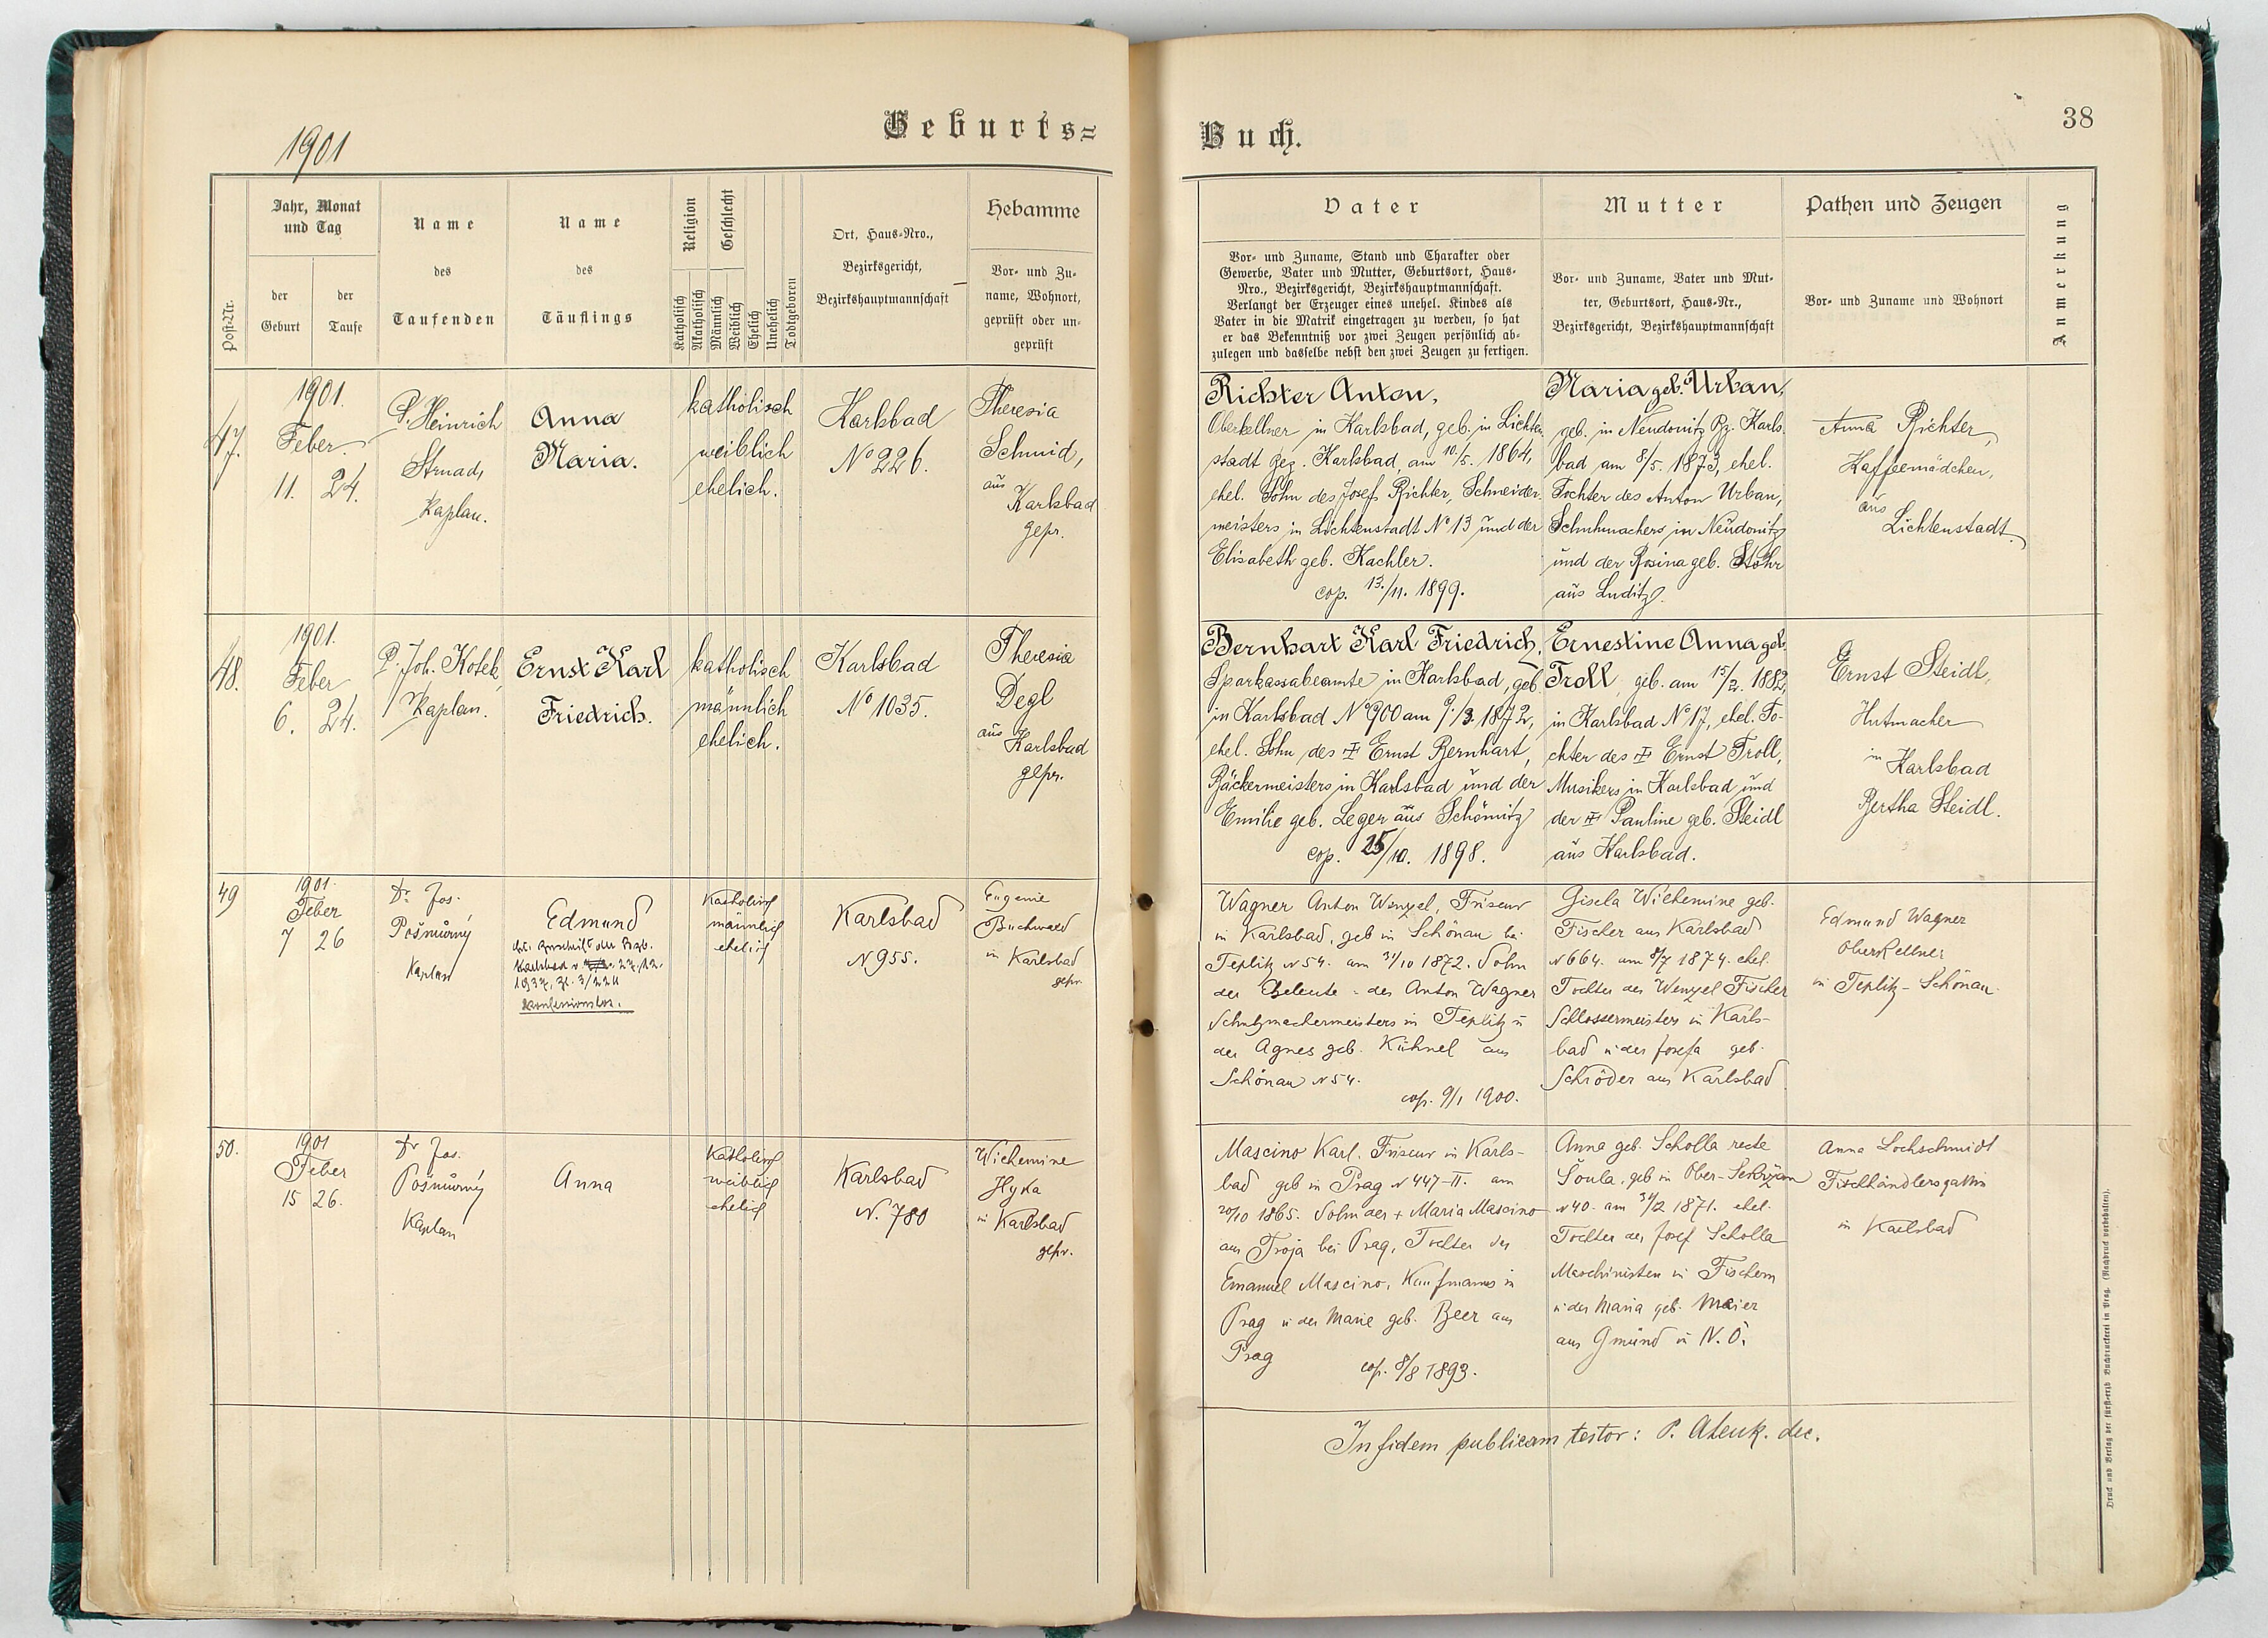 1901
Geburts=
Post-Nr.
Jahr, Monat
und Tag
der
Geburt
der
Taufe
Name
des
Taufenden
Name
des
Täuflings
Religion
Katholisch
Akatholisch
Geschlecht
Männlich
Weiblich
Ehelich
Unehelich
Todtgeboren
Ort, Haus-Nro.,
Bezirksgericht,
Bezirkshauptmannschaft
Hebamme
Vor- und Zu-
name, Wohnort,
geprüft oder un-
geprüft
47.
1901.
Feber
11. 24.
P. Heinrich
Strnad,
Kaplan.
Anna
Maria.
katholisch
weiblich
ehelich.
Karlsbad
No 226.
Theresia
Schmid,
aus
Karlsbad
gepr.
48.
1901.
Feber
6. 24.
P. Joh. Kotek,
Kaplan.
Ernst Karl
Friedrich.
katholisch
männlich
ehelich.
Karlsbad
No 1035.
Theresia
Degl
aus
Karlsbad
gepr.
49
1901.
Feber
7 26
Dr. Jos.
Pošmůrný
Kaplan
Edmund
Karlsbad
konfessionslos.
Katholisch
männlich
ehelich
Karlsbad
N. 955.
Eugenie
Buchwald
in Karlsbad
gepr.
50.
1901
Feber
15 26.
Dr Jos.
Pošmůrný
Kaplan
Anna
Katholisch
weiblich
ehelich
Karlsbad
N. 780
Wilhemine
Hyka
in Karlsbad
gepr.
Buch.
38
Vater
Vor- und Zuname, Stand und Charakter oder
Gewerbe, Vater und Mutter, Geburtsort, Haus-
Nro., Bezirksgericht, Bezirkshauptmannschaft.
Verlangt der Erzeuger eines unehel. Kindes als
Vater in die Matrik eingetragen zu werden, so hat
er das Bekenntniß vor zwei Zeugen persönlich ab-
zulegen und dasselbe nebst den zwei Zeugen zu fertigen.
Mutter
Vor- und Zuname, Vater und Mut-
ter, Geburtsort, Haus-Nr.,
Bezirksgericht, Bezirkshauptmannschaft
Pathen und Zeugen
Vor- und Zuname und Wohnort
Anmerkung
Richter Anton,
Oberkellner in Karlsbad, geb. in Lichten-
stadt Bez. Karlsbad, am 10./5. 1864,
ehel. Sohn des Josef Richter, Schneider-
meisters in Lichtenstadt No 13 und der
Elisabeth geb. Kachler.
cop. 13./11. 1899.
Maria geb. Urban,
geb. in Neudonitz Bz. Karls-
bad am 8/5. 1873, ehel.
Tochter des Anton Urban,
Schuhmachers in Neudonitz
und der Rosina geb. Stöhr
aus Luditz.
Anna Richter,
Kaffeemädchen,
aus
Lichtenstadt.
Bernhart Karl Friedrich,
Sparkassabeamte in Karlsbad, geb.
in Karlsbad No 900 am 9./3. 1872,
ehel. Sohn des † Ernst Bernhart,
Bäckermeisters in Karlsbad und der
Emilie geb. Leger aus Schömitz
cop. 25/10. 1898.
Ernestine Anna geb.
Troll, geb. am 15/2. 1882,
in Karlsbad No 17, ehel. To-
chter des † Ernst Troll,
Musikers in Karlsbad und
der † Pauline geb. Steidl
aus Karlsbad.
Ernst Steidl,
Hutmacher
in Karlsbad
Bertha Steidl.
Wagner Anton Wenzel, Friseur
in Karlsbad, geb in Schönau bei
Teplitz N 54. am 31/10 1872. Sohn
der Eheleute - des Anton Wagner
Schuhmachermeisters in Teplitz u
der Agnes geb. Kühnel aus
Schönau N 54.
cop. 9/1 1900.
Gisela Wilhemine geb.
Fischer aus Karlsbad
N 664. am 8/7 1874. ehel.
Tochter des Wenzel Fischer
Schlossermeisters in Karls-
bad u der Josefa geb.
Schröder aus Karlsbad
Edmund Wagner
Oberkellner
in Teplitz-Schönau.
Mascino Karl. Friseur in Karls-
bad geb in Prag N 447-II. am
20/10 1865. Sohn der + Maria Mascino
aus Troja bei Prag, Tochter des
Emanuel Mascino, Kaufmanns in
Prag u der Marie geb. Beer aus
Prag
cop. 8/8 1893.
Anna geb. Scholla recte
Šoula, geb in Ober-Sekrzan
N 40. am 1871. ehel.
Tochter des Josef Scholla
Maschinisten in Fischern
u der Maria geb. Maier
aus Gmünd in N. Ö.
Anna Lochschmidt
Fischhändlersgattin
in Karlsbad
In fidem publicam testor: P. Alenk. dec.
Druck und Verlag der fürst-erzb Buchdruckerei in Prag. (Nachdruck vorbehalten).